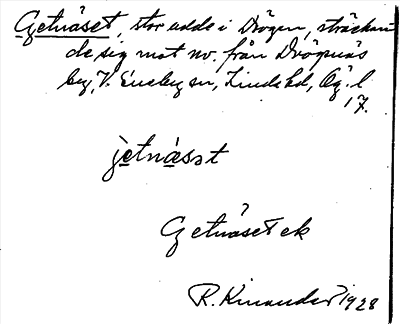 Getnäset, stor udde i Drögen, sträckan
de sig mot nv. från Drögsnäs
by, V. Eneby sn, Kinds hd, Ög. l
17.
jetnäsət
Getnäset ek
R. Kinander 1928